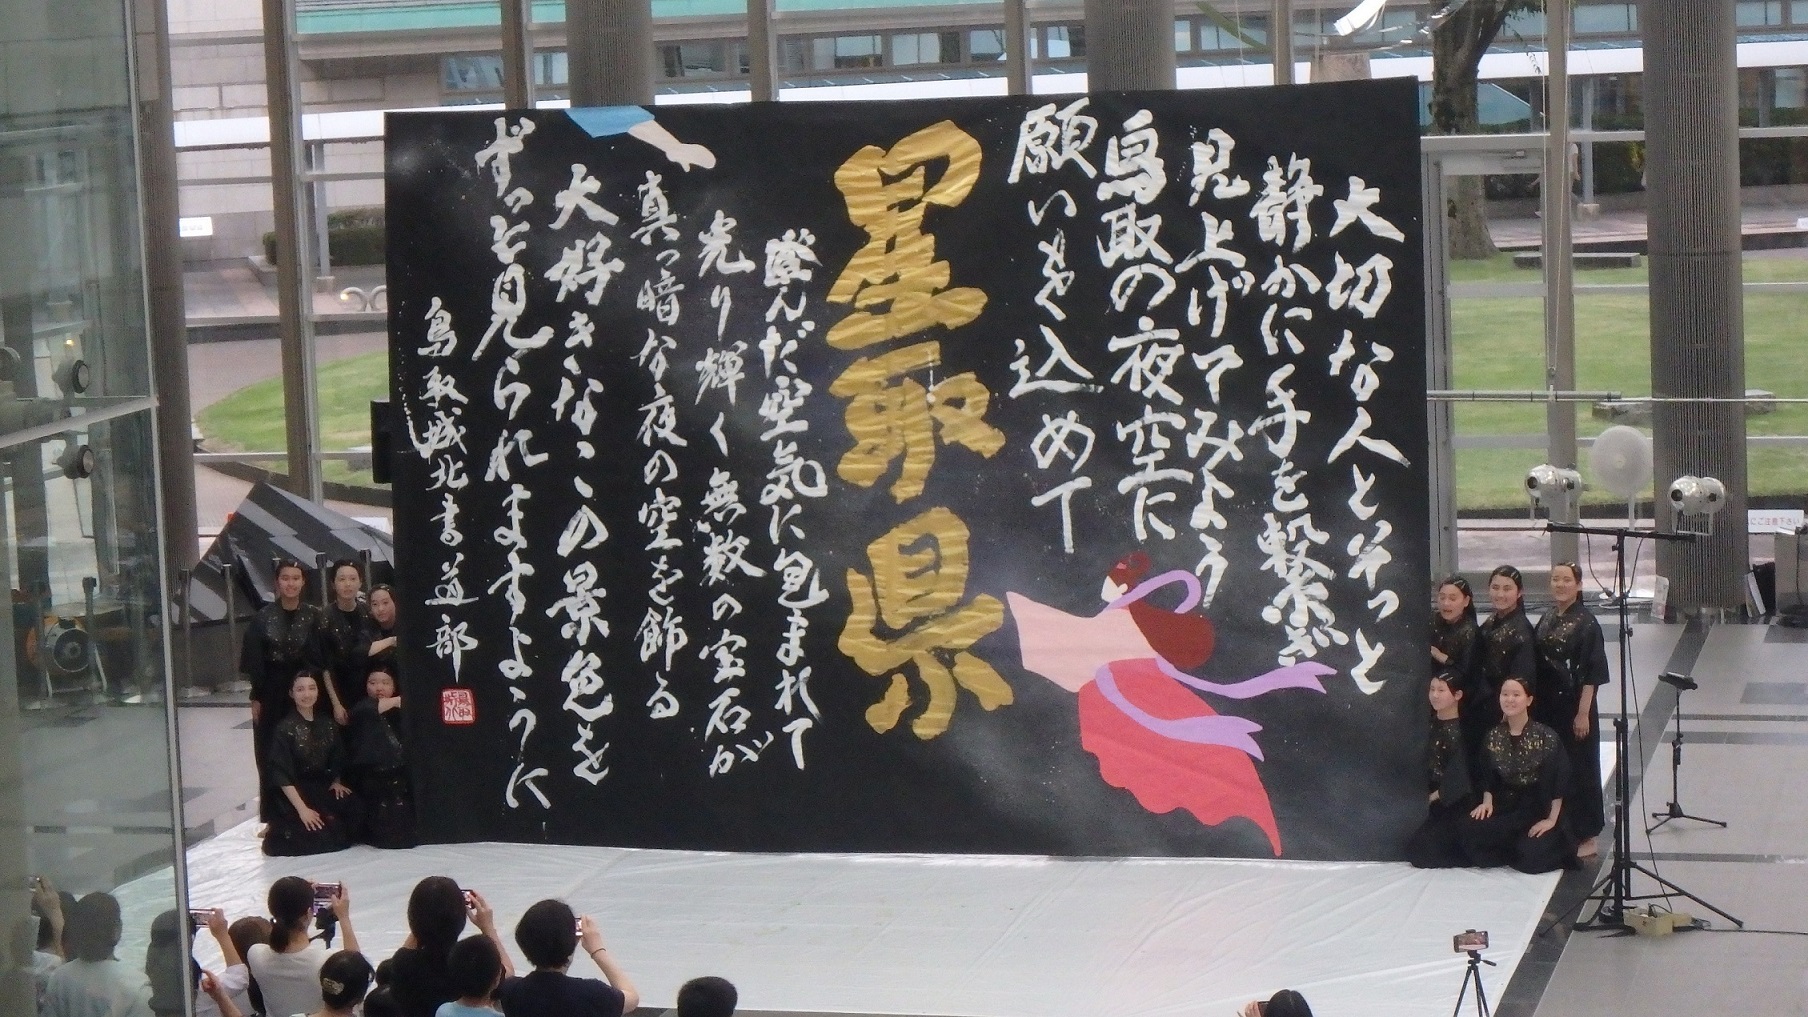 大切な人とそっと
静かに手を繋ぎ
見上げてみよう
鳥取の夜空に
願いを込めて
星取県
澄んだ空気に包まれて
光り輝く無数の宝石が
真っ暗な夜の空を飾る
大好きなこの景色を
ずっと見られますように
鳥取城北書道部